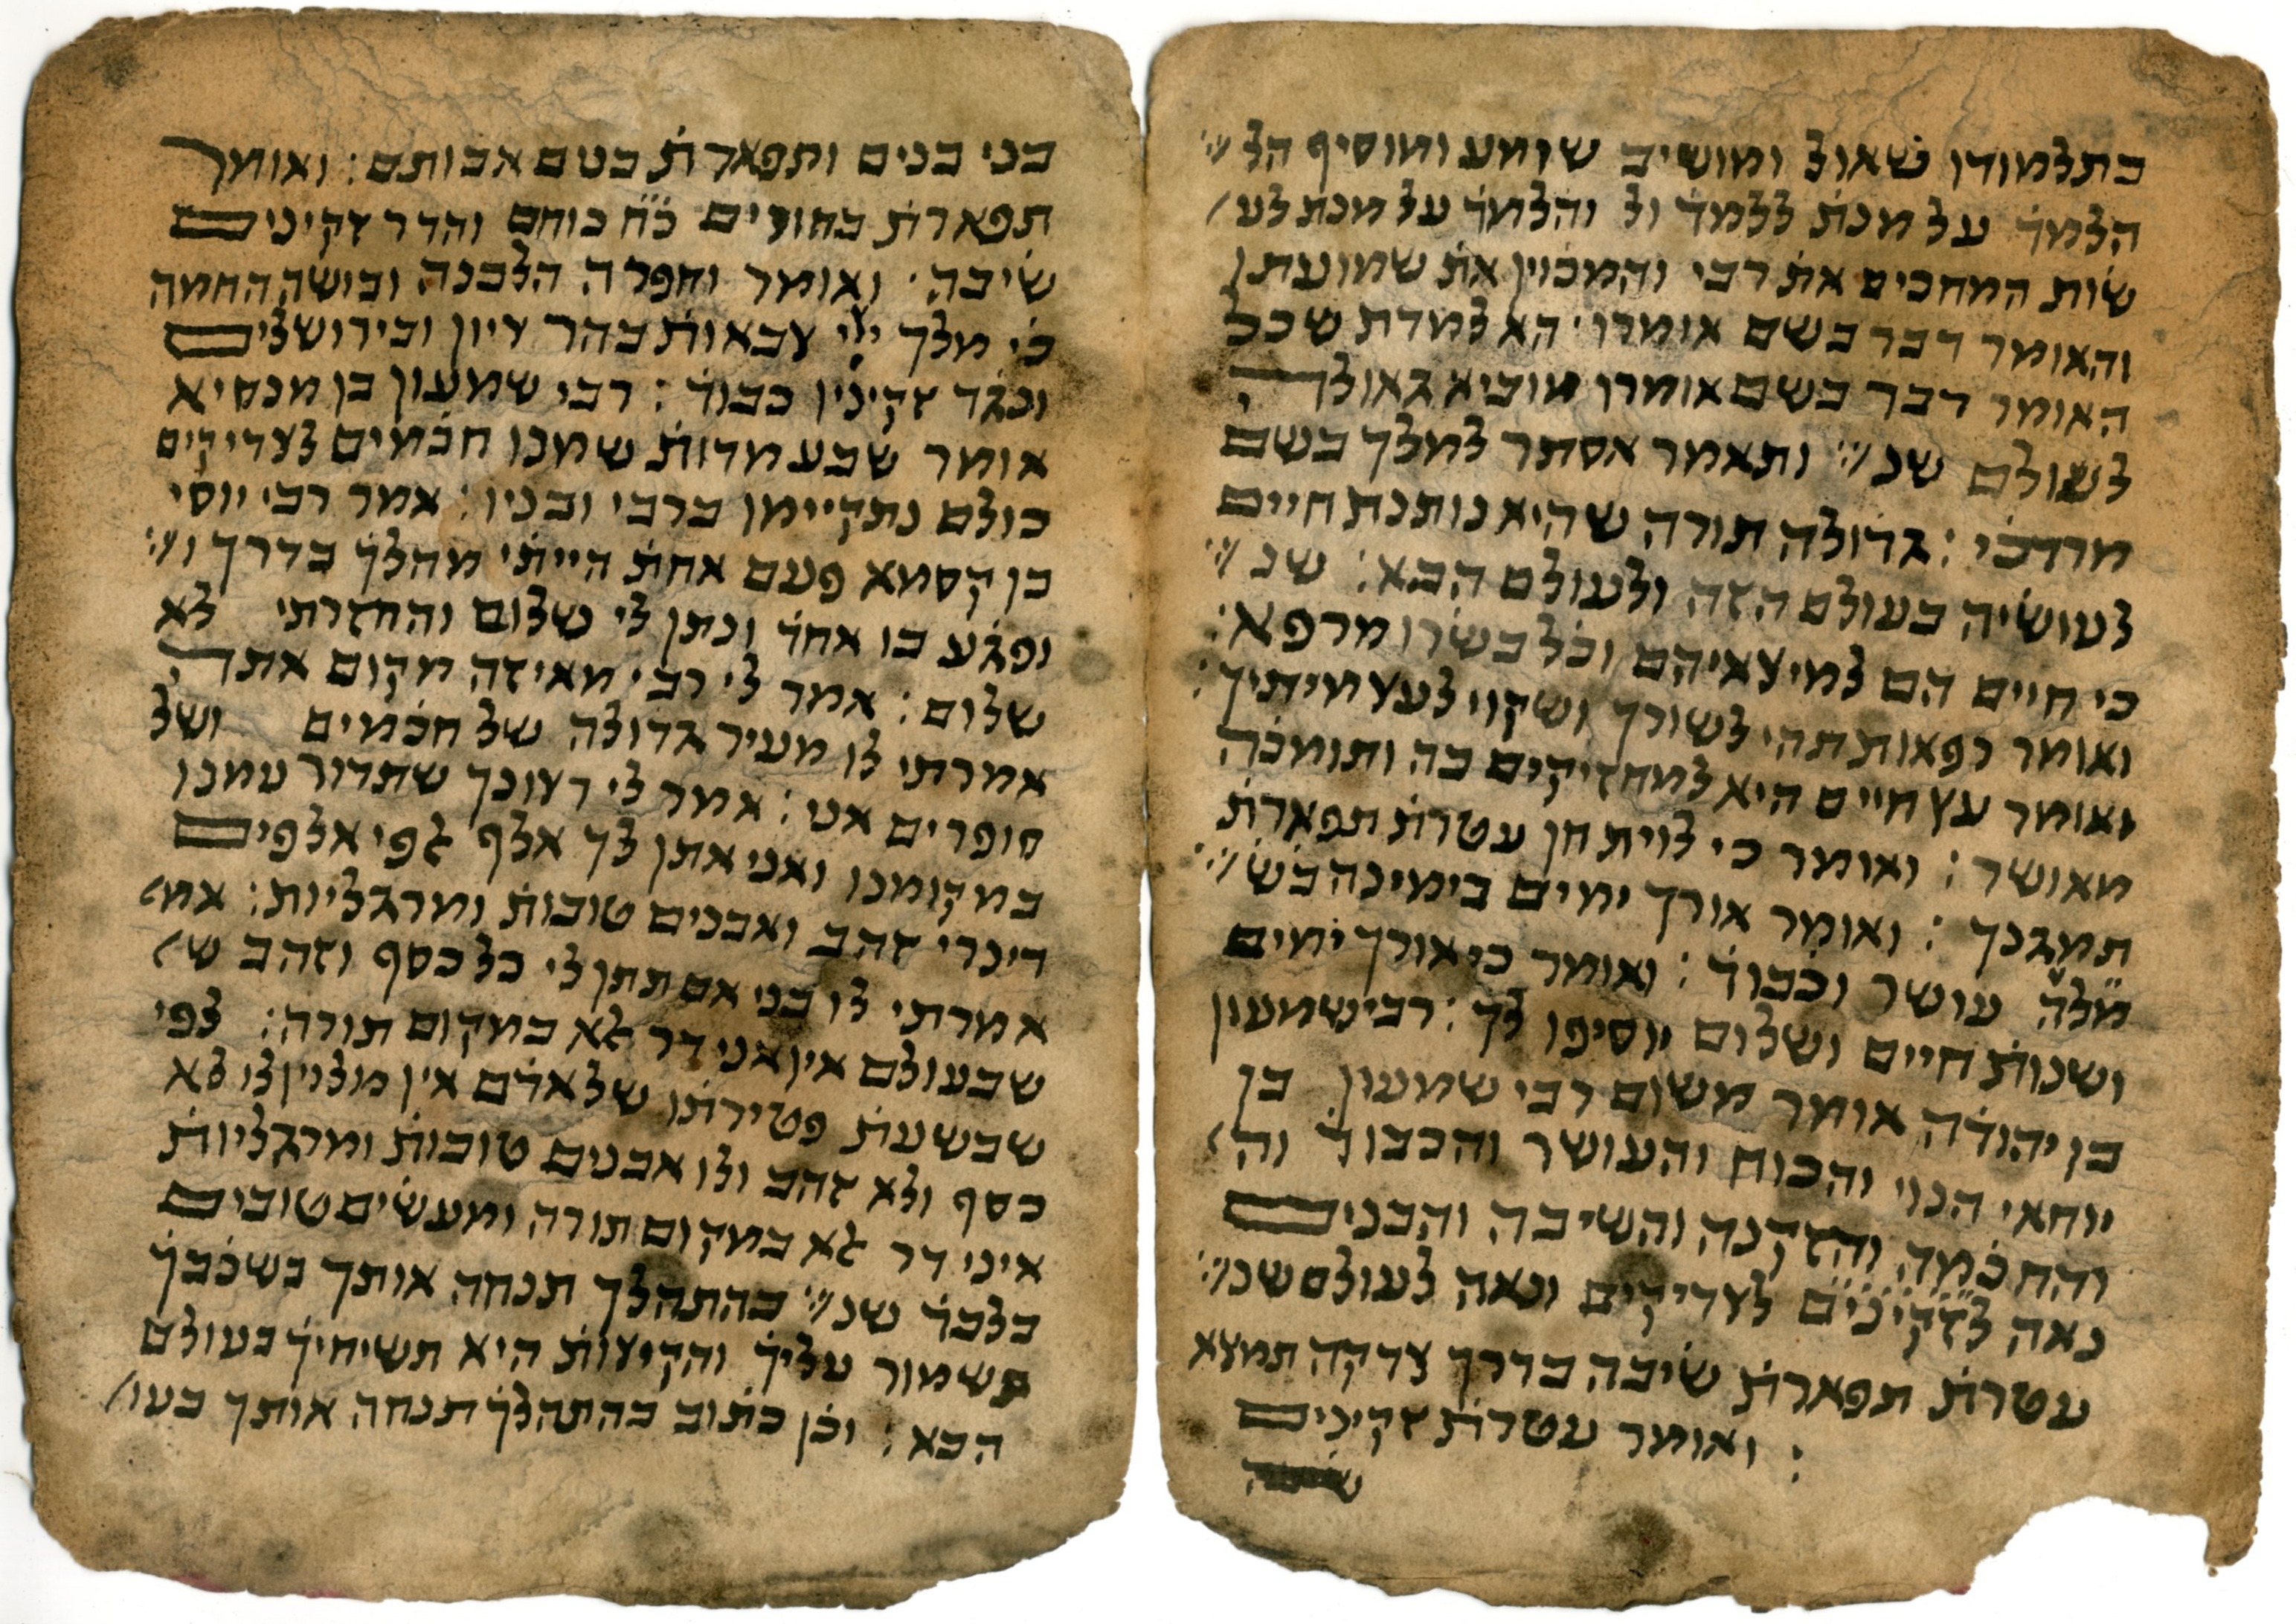 בתלמודו שואל ומושיב שומע ומוסיף הל׳׳
הלמד על מנת ללמד ול והלמד על מנת לע׳
שות המחכים את רבי והמכוין את שמועתו
והאומר דבר בשם אומרו׳ הא למדת שכל
האומר דבר בשם אומרו מוביא גאולה
לעולם שנ׳׳ ותאמר אסתר למלך בשם
מרדכי : גדולה תורה שהיא נותנת חיים
לעושיה בעולם הזה ולעולם הבא: שנ׳׳
כי חיים הם למיצאיהם וכל בשרו מרפא:
ואומר רפאות תהי לשורך ושקוי לעצמיתיך:
ואומר עץ חיים היא למחזיקים בה ותומכה
מאושר : ואומר כי לוית חן עטרת תפארת
תמגנך : ואומר אורך ימים בימינה בש׳׳
מלה עושר וכבוד : ואומר כי אורך ימים
ושנות חיים ושלום יוסיפו לך : רבי שמעון
בן יהודה אומר משום רבי שמעון בן
יוחאי הנוי והכוח והעושר והכבוד וה׳
והחכמה והזקנה והשיבה והבנים
נאה לזקינים לצדיקים ונאה לעולם שנ׳׳
עטרת תפארת שיבה בדרך צדקה תמצא
: ואומר עטרת זקינים
בני בנים ותפארת בטם אבותם : ואומר
תפארת בחורים כ״ח כוחם והדר זקינים
שיבה׳ ואומר וחפרה הלבנה ובושה החמה
כי מלך ייי צבאות בהר ציון ובירושלים
ונגד זקינין כבוד : רבי שמעון בן מנסיא
אומר שבע מדות שמנו חכמים לצדיקים
כולם נתקיימו ברבי ובניו : אמר רבי יוסי
בן קסמא פעם אחת הייתי מהלך בדרך ו׳׳
ופגע בו אחד ונתן לי שלום והחזרתי לא
שלום : אמר לי רבי מאיזה מקום אתה
אמרתי לו מעיר גדולה של חכמים ושל
סופרים אני : אמר לי רצונך שתדור עמנו
במקומנו ואני אתן לך אלף לפי אלפים
דינרי זהב ואבנים טובות ומרגליות: אמ׳
אמרתי לו בני אם תתן לי כל כסף וזהב ש׳
שבעולם אין אני דר לא במקום תורה: לפי
שבשעת פטירתו של אדם אין מלוין לו לא
כסף ולא זהב ולו אבנים טובות ומרגליות
איני דר לא במקום תורה ומעשים טובים
בלבד שנ׳׳ בהתהלך תנחה אותך בשכבך
תשמור עליך והקיצות היא תשיחיך בעולם
הבא : וכן כתוב בהתהלך תנחה אותך בעו׳